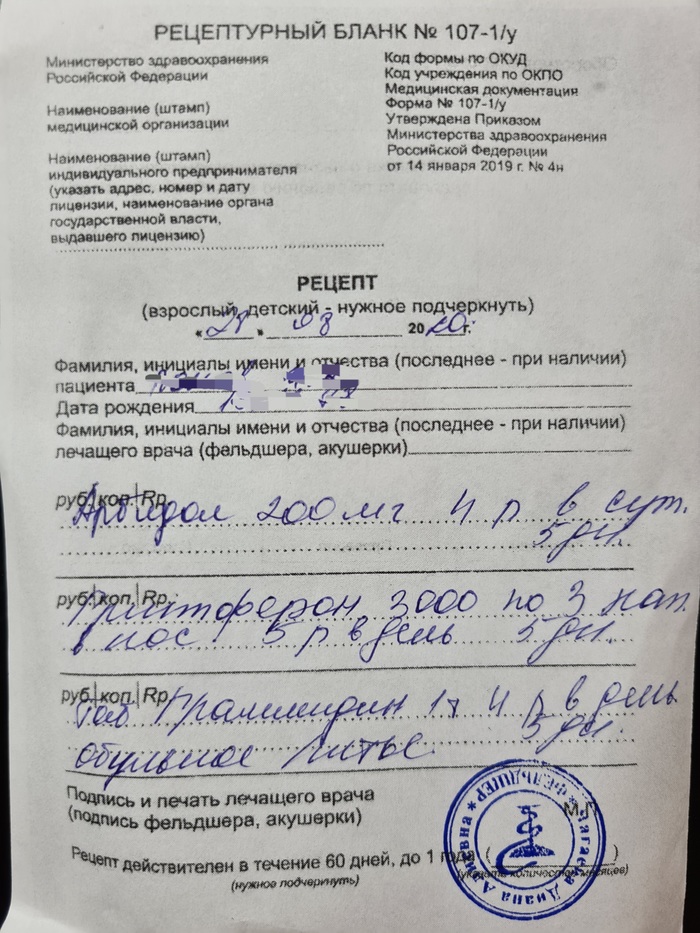 РЕЦЕПТУРНЫЙ БЛАНК № 107-1/у
Министерство здравоохранения
Российской Федерации
Наименование (штамп)
медицинской организации
Наименование (штамп)
индивидуального предпринимателя
(указать адрес, номер и дату
лицензии, наименование органа
государственной власти,
выдавшего лицензию)
Код формы по ОКУД
Код учреждения по ОКПО
Медицинская документация
Форма № 107-1/у
Утверждена Приказом
Министерства здравоохранения
Российской Федерации
от 14 января 2019 г. № 4н
РЕЦЕПТ
(взрослый, детский - нужное подчеркнуть)
" " 2020г.
Фамилия, инициалы имени и отчества (последнее - при наличии)
пациента
Дата рождения
Фамилия, инициалы имени и отчества (последнее - при наличии)
лечащего врача (фельдшера, акушерки)
руб.|коп.|Rp.
Арбидол 200 мг 4 р в сут.
5 дн.
руб.|коп.|Rp.
Гриппферон 3000 по 3 кап.
в нос 5 р в день 5 дн.
руб.|коп.|Rp.
Таб Граммидин 1т 4 р в день
5 дн.
обильное питье
Подпись и печать лечащего врача
(подпись фельдшера, акушерки)
М.П.
ФЕЛЬДШЕР
Диана
Рецепт действителен в течение 60 дней, до 1 года ( )
(нужное подчеркнуть)
(указать количество месяцев)